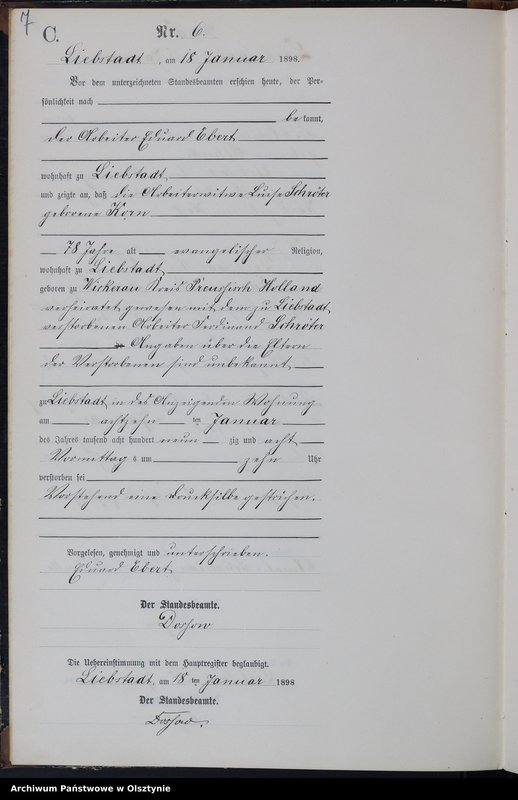 7
C.
Nr. 6.
Liebstadt, am 18 Januar 1898.
Vor dem unterzeichneten Standesbeamten erschien heute, der Per-
sönlichkeit nach
be kannt,
der Arbeiter Eduard Ebert
wohnhaft zu Liebstadt,
und zeigte an, daß die Arbeiterwitwe Luise Schröter
geborene Korn
78 Jahre alt evangelischer Religion,
wohnhaft zu Liebstadt,
geboren zu Wickerau Kreis Preussisch Holland
verheiratet gewesen mit dem zu Liebstadt
verstorbenen Arbeiter Ferdinand Schröter
Angaben über die Eltern
der Verstorbenen sind unbekannt
zu Liebstadt in des Anzeigenden Wohnung
am achtzehn ten Januar
des Jahres tausend acht hundert neun zig und acht
Vormittags um zehn Uhr
verstorben sei
Vorstehend eine Drucksilbe gestrichen.
Vorgelesen, genehmigt und unterschrieben.
Eduard Ebert
Der Standesbeamte.
Die Uebereinstimmung mit dem Hauptregister beglaubigt.
Liebstadt, am 18 ten Januar 1898
Der Standesbeamte.
Archiwum Państwowe w Olsztynie